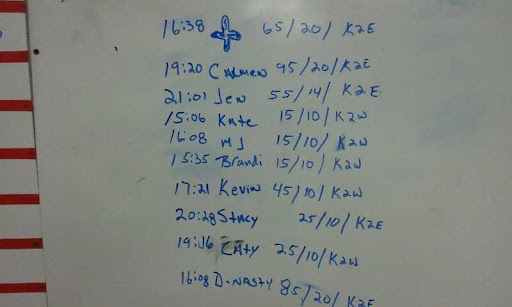 16:38 65/20/ K2E
19:20 CARMEN 95/20/K2E
21:01 Jen 55/14/ K2E
15:06 Kate 15/10/ K2W
16:08 MJ 15/10/ K2W
15:35 Brandi 15/10/ K2W
17:21 Kevin 45/10/K2W
20:28 STACY 25/10/K2E
19:16 CATY 25/10/K2W
16:08 D-NASTY 85/20/K2E